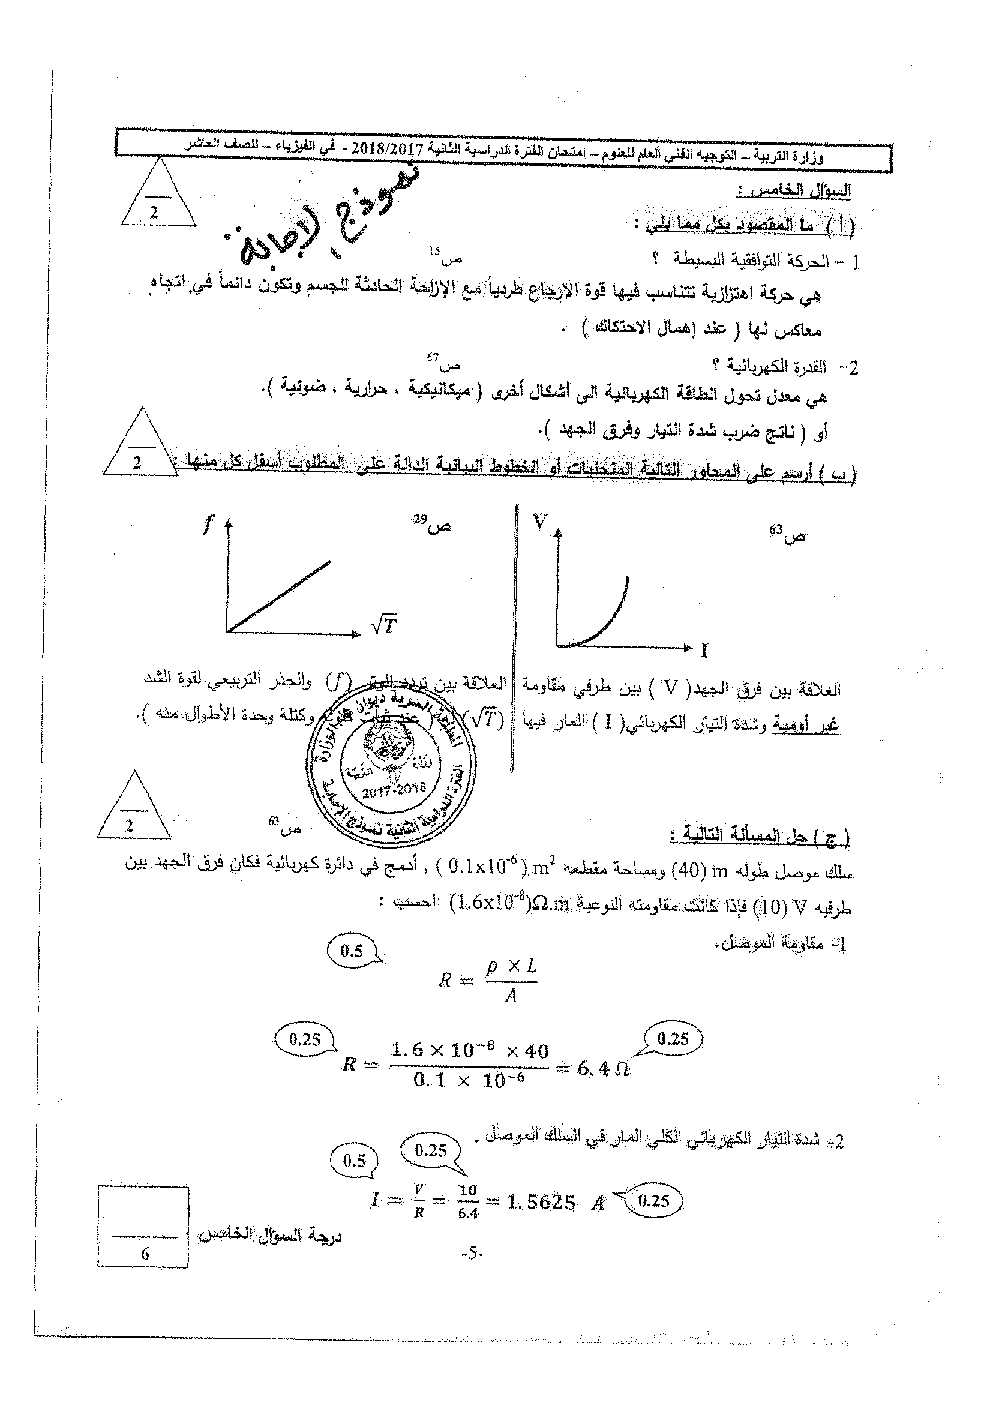 وزارة التربية – التوجيه الفني العام للعلوم – امتحان الفترة الدراسية الثانية 2018/2017 - في الفيزياء – للصف العاشر
نموذج الإجابة
السؤال الخامس :
2
( أ ) ما المقصود بكل مما يلي :
1 - الحركة التوافقية البسيطة ؟ ص15
هي حركة اهتزازية تتناسب فيها قوة الإرجاع طردياً مع الإزاحة الحادثة للجسم وتكون دائماً في اتجاه
معاكس لها ( عند إهمال الاحتكاك ) .
2- القدرة الكهربائية ؟ ص67
هي معدل تحول الطاقة الكهربائية الى أشكال أخرى ( ميكانيكية ، حرارية ، ضوئية ).
أو ( ناتج ضرب شدة التيار وفرق الجهد ).
2
( ب ) أرسم على المحاور التالية المنحنيات أو الخطوط البيانية الدالة على المطلوب أسفل كل منها :
V
ص63
I
f
ص29
√T
العلاقة بين فرق الجهد( V ) بين طرفي مقاومة
غير أومية وشدة التيار الكهربائي( I ) المار فيها
العلاقة بين تردد الوتر (f) والجذر التربيعي لقوة الشد
(√T) ( عند ثبات طول الوتر وكتلة وحدة الأطوال منه ).
2017-2018
2
( ج ) حل المسألة التالية :
سلك موصل طوله m (40) ومساحة مقطعه m² (0.1x10⁻⁶) , أدمج في دائرة كهربائية فكان فرق الجهد بين
طرفيه V (10) فإذا كانت مقاومته النوعية Ω.m(1.6x10⁻⁸) احسب :
1- مقاومة الموصل.
0.5
R = ρ × L / A
0.25 R = 1.6 × 10⁻⁸ × 40 / 0.1 × 10⁻⁶ = 6.4 Ω 0.25
2- شدة التيار الكهربائي الكلي المار في السلك الموصل .
0.5 0.25
I = V/R = 10/6.4 = 1.5625 A 0.25
درجة السؤال الخامس
6
-5-